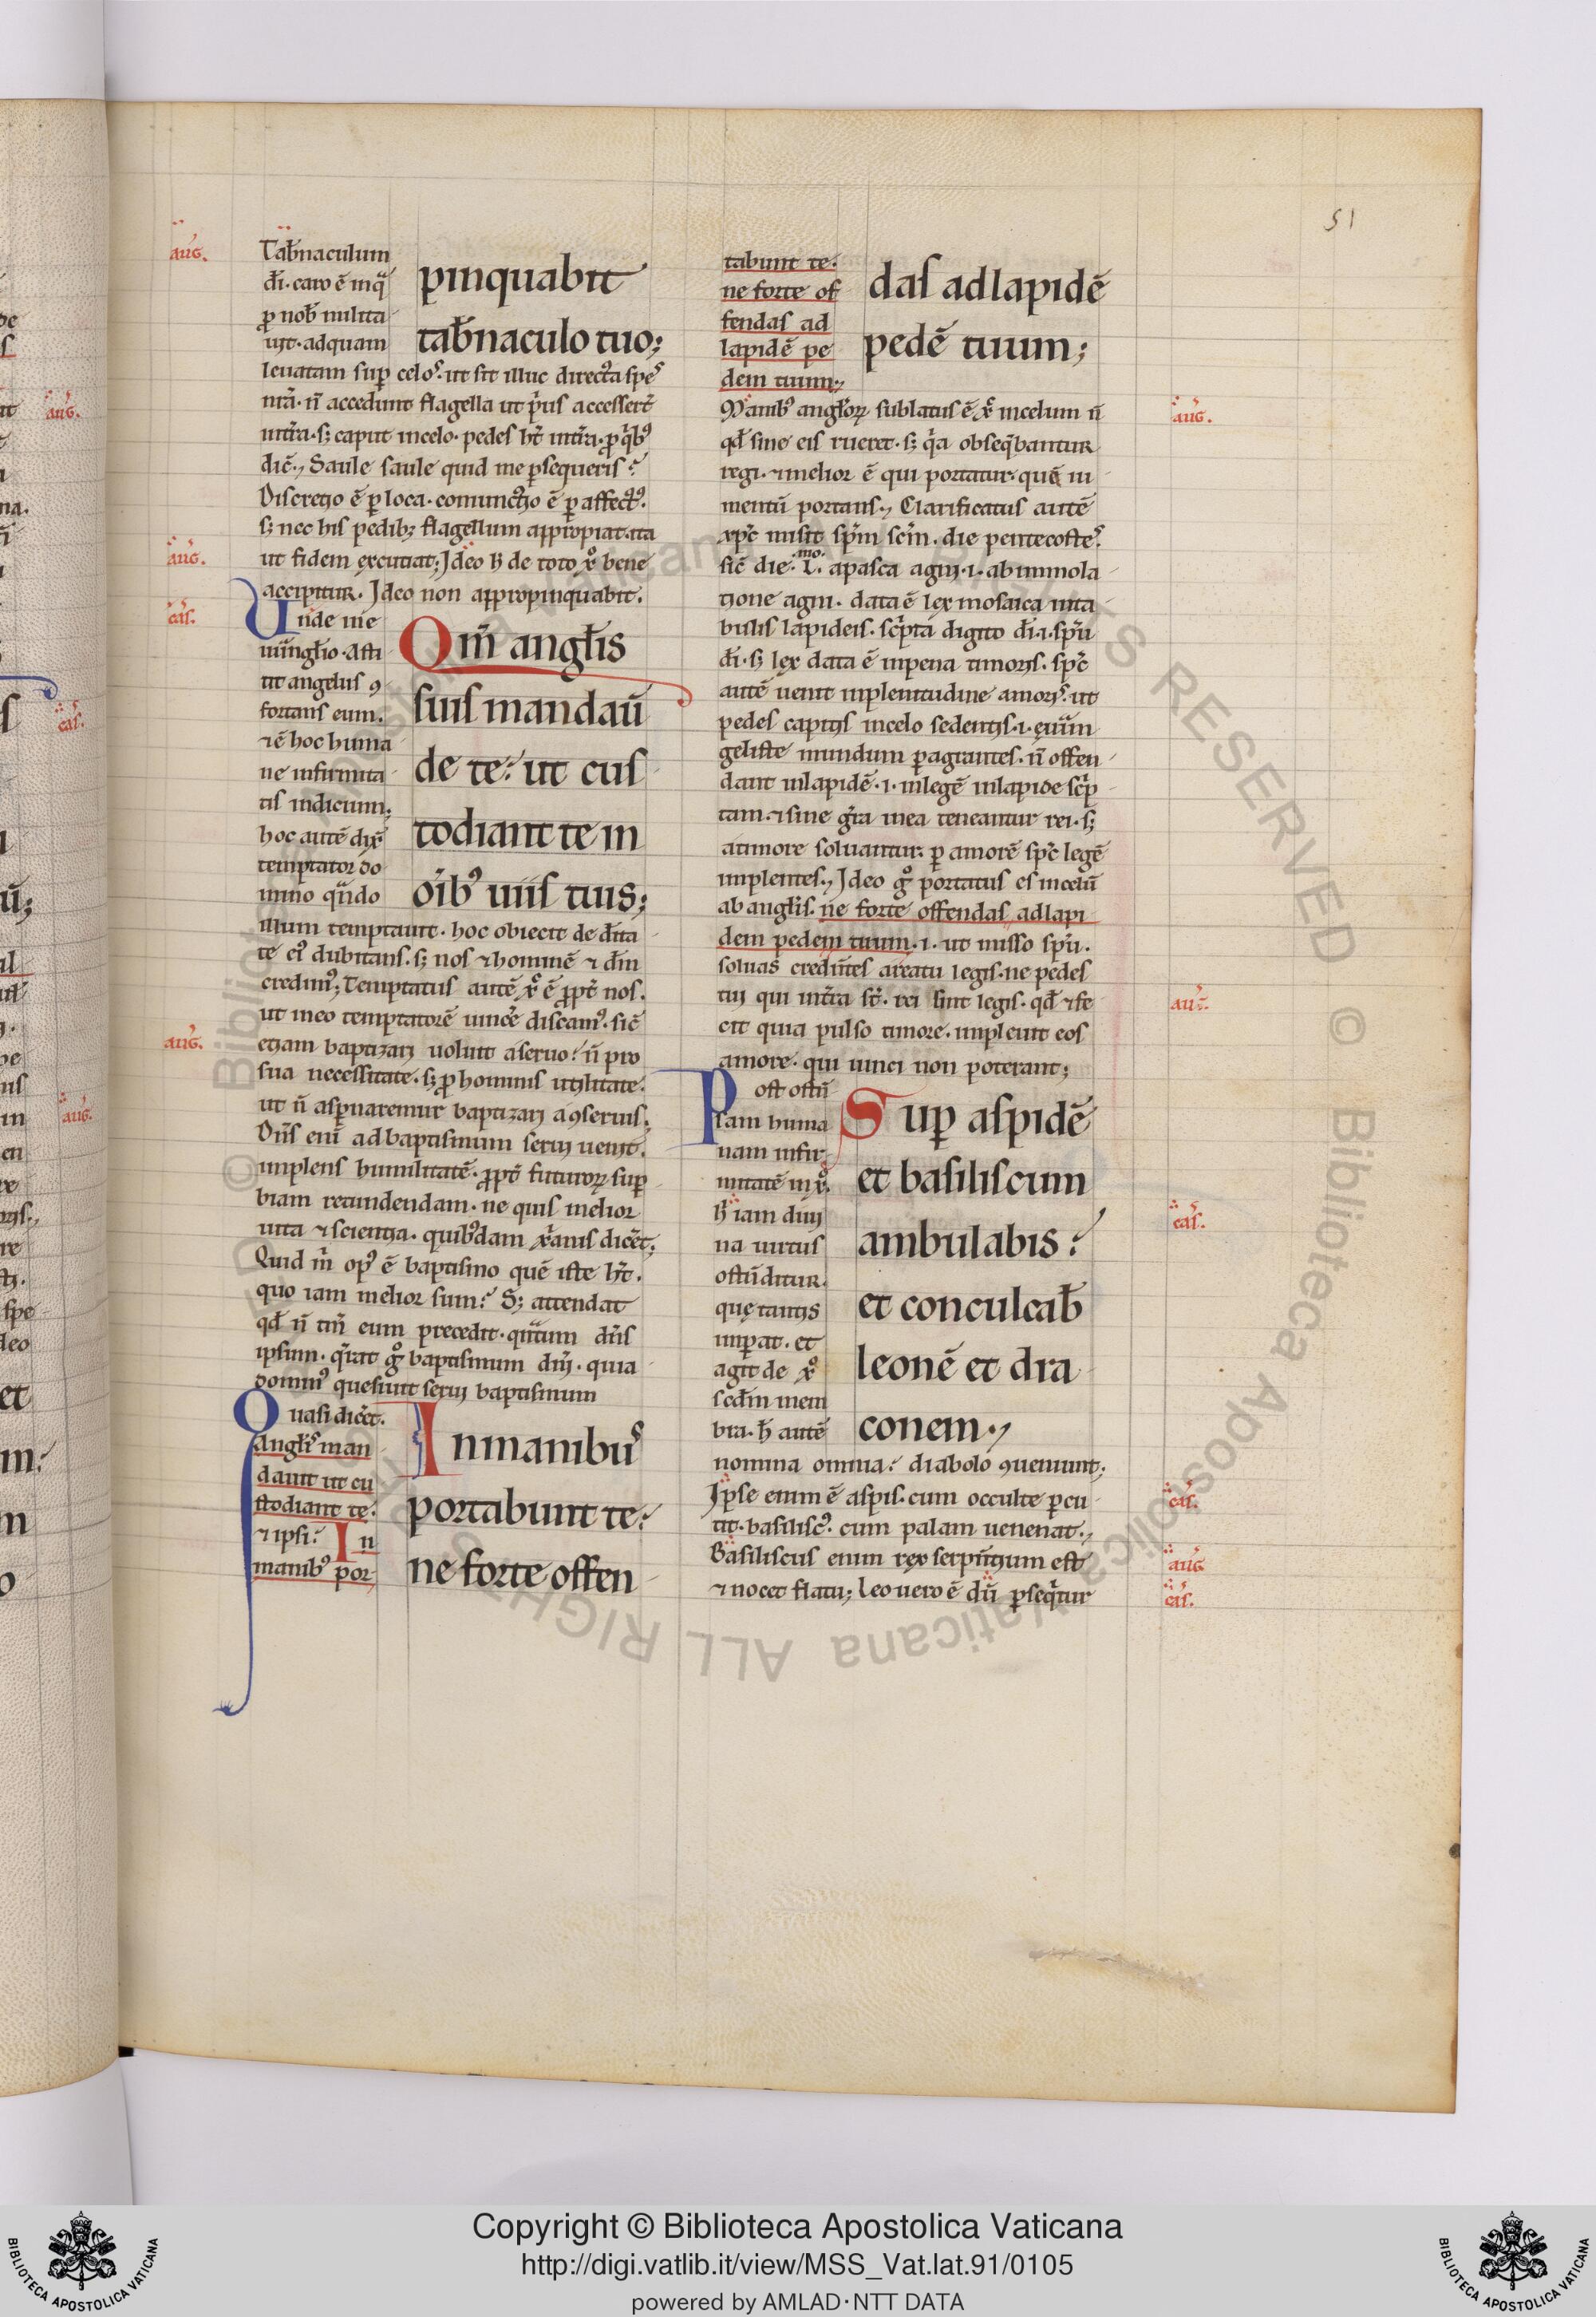 51
auḡ.
Tab̄naculum
d̄i. caro ē in qͣ
ꝓ nob̄ milita
uit. ad quam
pinquabit
tab̄naculo tuo;
leuatam suꝑ celoˢ. ut sit illuc directa speˢ
nr̄a. n̄ accedunt flagella ut pͥus accesser̄t
in tr̄a. sꝫ caput in celo. pedes hn̄t in tr̄a. ꝓ qͥbꝰ
dic̄., Saule saule quid me ꝑsequeris?
Discretio ē ꝑ loca. coniunctio ē ꝑ affectꝰ.
sꝫ nec his pedibꝫ flagellum appropiat. ita
auḡ.
ut fidem excutiat; Ideo h̄ de toto xͦ bene
accipitur. Ideo non appropinquabit.
cas̄.
Unde in e
uūngl̄io. Asti
tit angelus ꝯ
fortans eum.
⁊ ē hoc huma
ne infirmita
tis indicium;
hoc autē dix̄
temptator do
mino qͣndo
Qm̄ angl̄is
suis mandau̅
de te: ut cus
todiant te in
oīb’ uiis tuis;
illum temptauit. hoc obiecit de dīta
te eiꝰ dubitans. sꝫ nos ⁊ hominē ⁊ dm̄
credimꝰ; Temptatus autē xͦ ē ꝓpt̄ nos.
ut in eo temptatorē uince̅ discamꝰ. sic̄
auḡ.
etiam baptizari uoluit a seruo: n̄ pro
sua necessitate. sꝫ ꝓ hominis utilitate.
ut n̄ asꝑnaremur baptizari a ꝯseruis.
Dn̄s eni̅ ad baptismum serui uenit.
implens humilitatē. ꝓpt̄ futuroꝝ suꝑ
biam retundendam. ne quis melior
uita ⁊ scientia. quibꝰdam xͥanis dice̅t;
Quid m̄ opꝰ ē baptismo quē iste ht̄.
quo iam melior sum? Sꝫ attendat
qd̄ n̄ tm̄ eum precedit. qͣntum dn̄s
ipsum. qͥrat gͦ baptismum dn̄i. quia
dominꝰ quesiuit serui baptismum
Quasi dice̅t.
Angl̄iˢ man
dauit ut cu
stodiant te:
⁊ ipsi: In
manibꝰ por
In manibuˢ
portabunt te:
ne forte offen
tabunt te:
ne forte of
fendas ad
lapidē pe
dem tuum.,
das ad lapidē
pedē tuum;
auḡ.
Manibꝰ angl̄oꝝ sublatus ē xͦ in celum n̄
qd̄ sine eis rueret. sꝫ qͥa obseqͥbantur
regi. ⁊ melior ē qui portatur. quē iu
mentū portans., Clarificatus autē
xp̄c misit sp̄m sc̄m. die pentecosteˢ.
sic̄ die. l.ᵐᵒ. a pasca agni. i. ab immola
tione agni. data ē lex mosaica in ta
bulis lapideis. sc̄pta digito d̄i. i. sp̄u
d̄i. sꝫ lex data ē in pena timoris. sp̄c
autē uenit in plenitudine amoris. ut
pedes capitis in celo sedentis. i. euūn
geliste mundum ꝑagrantes. n̄ offen
dant in lapidē. i. in legē in lapide sc̄p
tam. ⁊ sine gr̄a mea teneantur rei. sꝫ
a timore soluantur. ꝑ amorē sp̄c legē
implentes., Ideo gͦ portatus es in celū
ab angl̄is. ne forte offendas ad lapi
dem pedem tuum. i. ut misso sp̄u.
soluas credn̄tes a reatu legis. ne pedes
auḡ.
tui qui in tr̄a st̄. rei sint legis. qd̄ ⁊ fe
cit quia pulso timore. impleuit eos
amore. qui uinci non poterant;
Post ostn̄
sam huma
nam infir
mitatē in xͦ.
cas̄.
h̄ iam diui
na uirtus
ostn̄ditur.
quę tantis
imꝑat. et
agit de xͦ
scd̄m mem
bra. h̄ autē
Suꝑ aspidē
et basiliscum
ambulabis:
et conculcab̄
leonē et dra
conem.,
nomina omnia: diabolo ꝯueniunt.
cas̄.
Ipse enim ē aspis. cum occulte ꝑcu
tit. basiliscꝰ. cum palam uenenat.,
auḡ
Basiliscus enim rex serpn̄tium est
cas̄.
⁊ nocet flatu; Leo uero ē dū ꝑseqͥtur
Copyright © Biblioteca Apostolica Vaticana
http://digi.vatlib.it/view/MSS_Vat.lat.91/0105
powered by AMLAD·NTT DATA